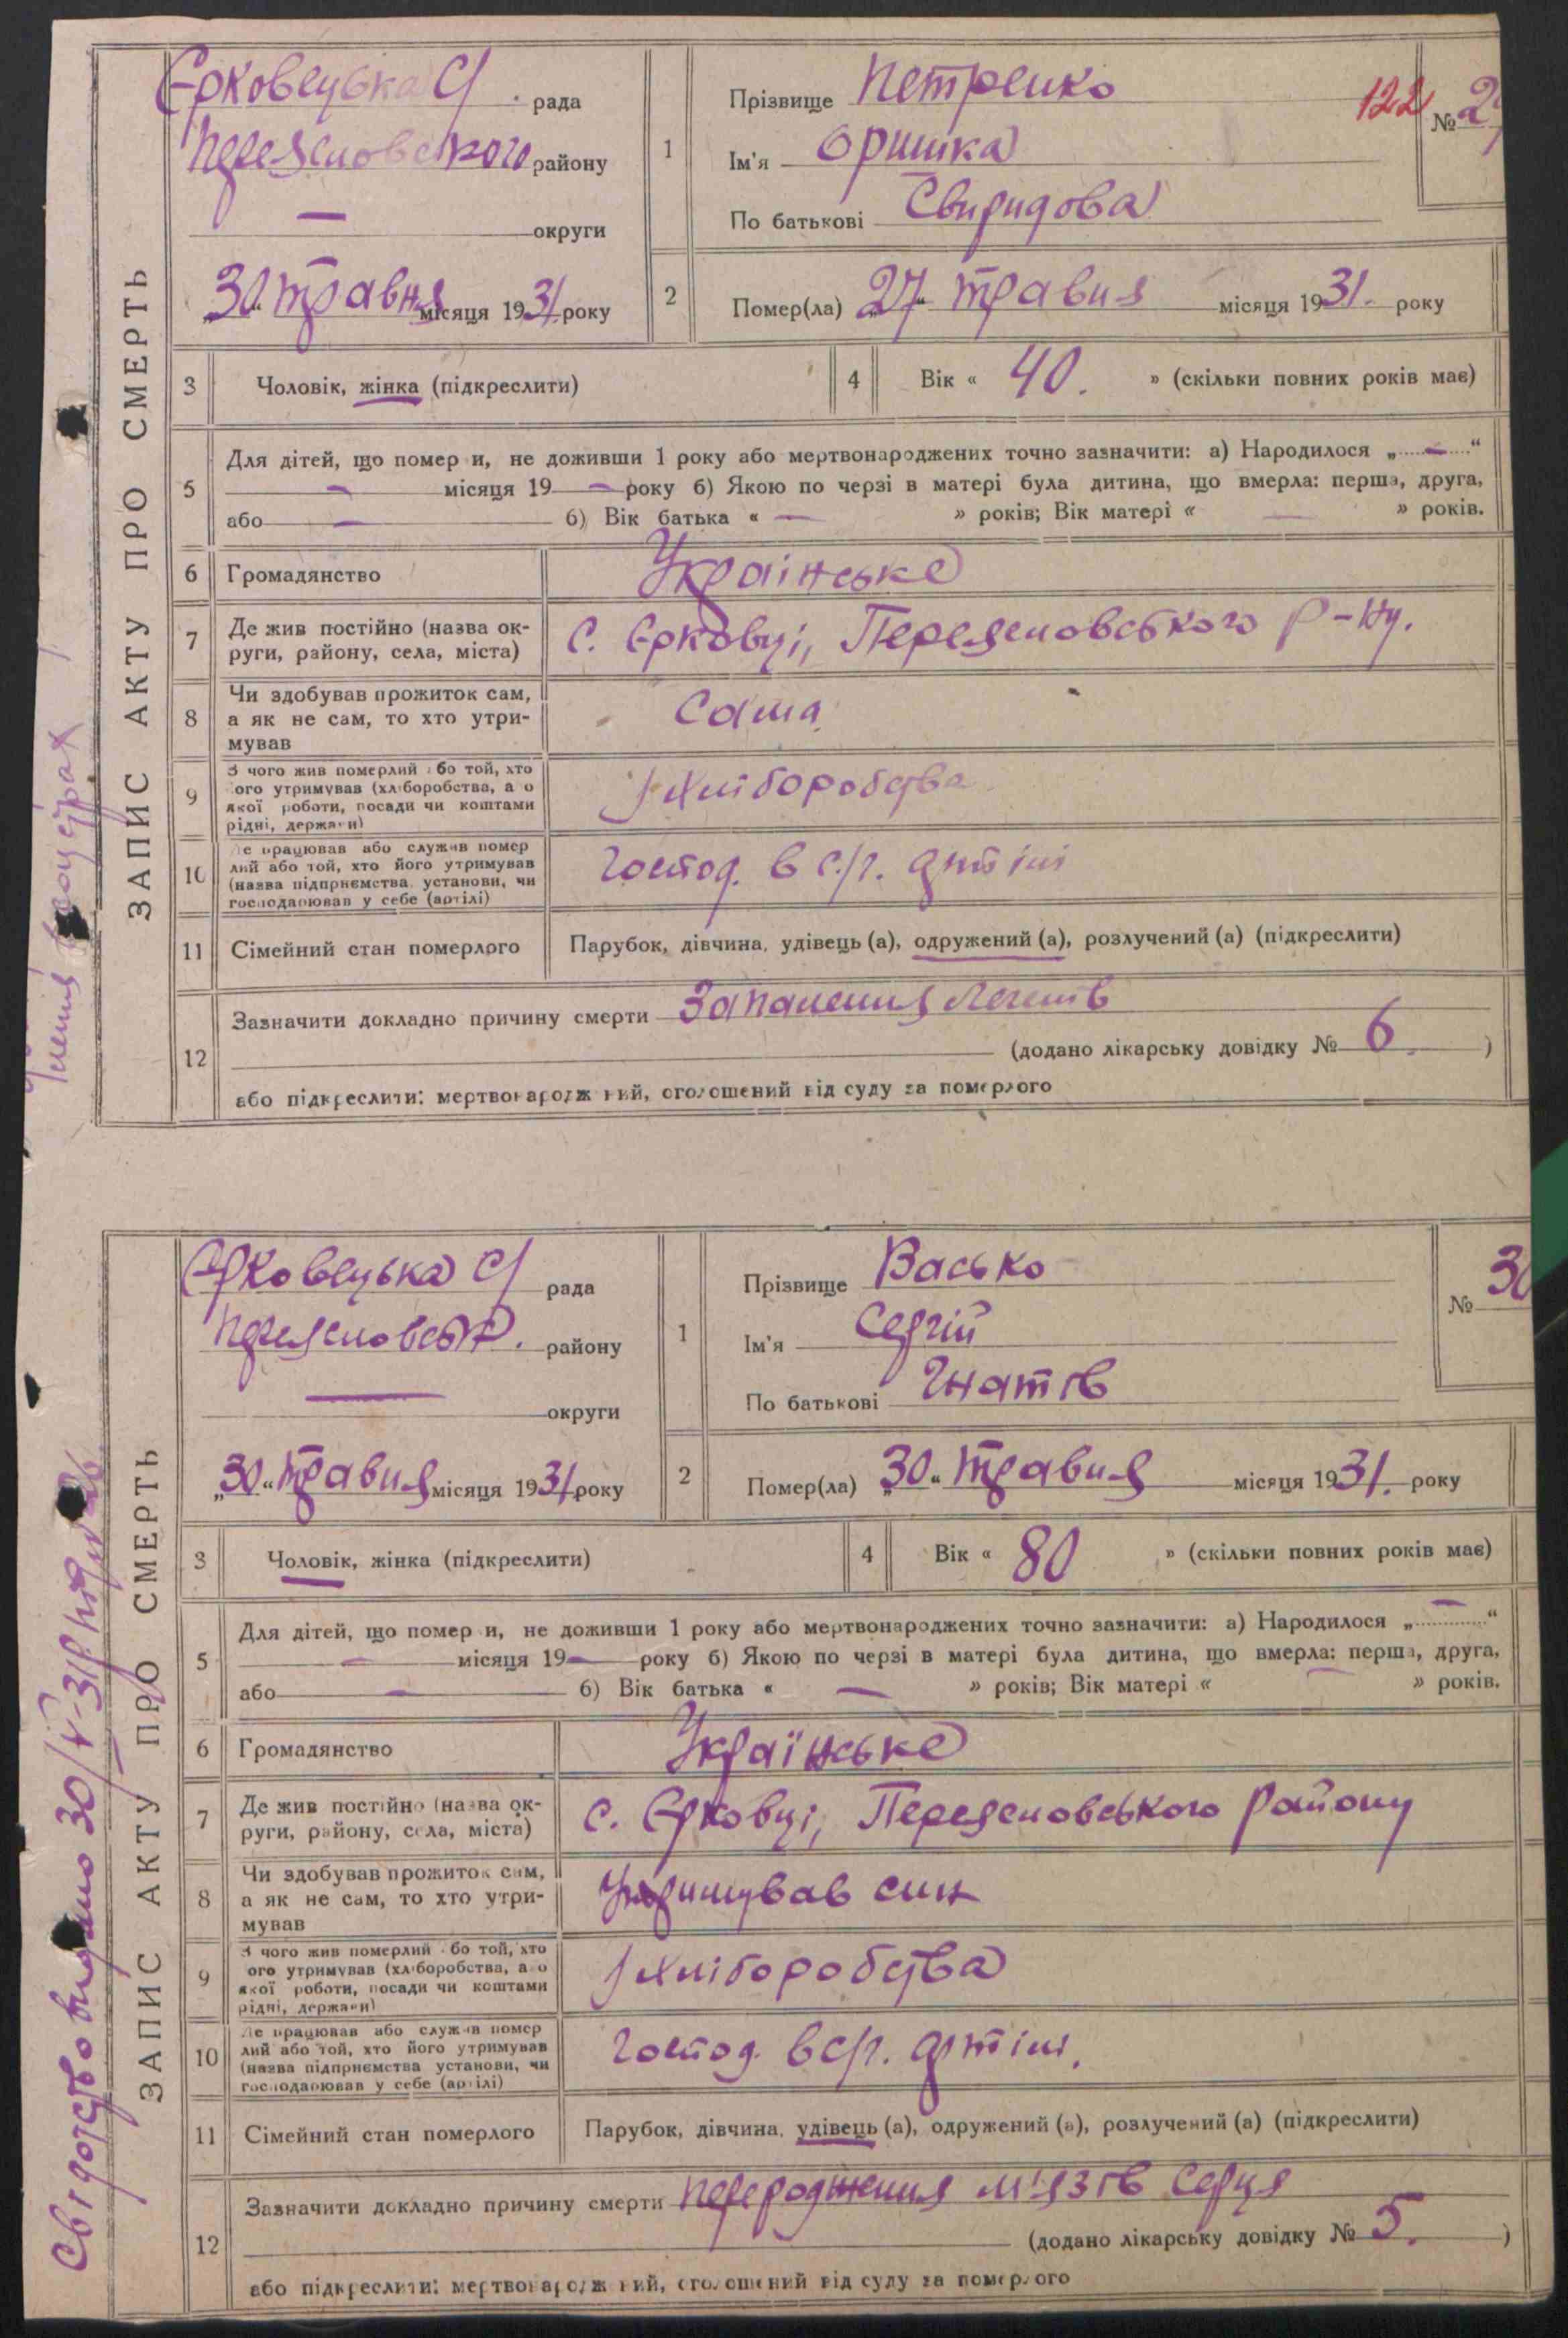 ЗАПИС АКТУ ПРО СМЕРТЬ
Єрковецька С/ рада
Переяславського району
— округи
30 травня місяця 1931 року
1
Прізвище Петренко
Ім'я Оришка
По батькові Свиридова
122
№ 29
2
Помер(ла) „27“ травня місяця 1931. року
3 Чоловік, жінка (підкреслити)
4 Вік « 40. » (скільки повних років має)
5
Для дітей, що помер и, не доживши 1 року або мертвонароджених точно зазначити: а) Народилося „ — “
— місяця 19 — року б) Якою по черзі в матері була дитина, що вмерла: перша, друга,
або — б) Вік батька « — » років; Вік матері « — » років.
6 Громадянство Українське
7
Де жив постійно (назва ок-
руги, району, села, міста)
с. Єрковці, Переяславського р-ну.
8
Чи здобував прожиток сам,
а як не сам, то хто утри-
мував
Сама
9
З чого жив померлий або той, хто
його утримував (хліборобства, або
якої роботи, посади чи коштами
рідні, держави)
З хліборобства
10
Де працював або служив помер
лий або той, хто його утримував
(назва підприємства установи, чи
господарював у себе (артілі)
Господ. в с/г. артілі
11 Сімейний стан померлого Парубок, дівчина, удівець (а), одружений (а), розлучений (а) (підкреслити)
12
Зазначити докладно причину смерти Запалення легенів
(додано лікарську довідку № 6. )
або підкреслити: мертвонароджений, оголошений від суду за померлого
Свідотство видано 30/V-31р.
ЗАПИС АКТУ ПРО СМЕРТЬ
Єрковецька С/ рада
Переяславськ. району
— округи
„30“ травня місяця 1931 року
1
Прізвище Васько
Ім'я Сергій
По батькові Гнатів
№ 30
2
Помер(ла) „30“ травня місяця 1931. року
3 Чоловік, жінка (підкреслити)
4 Вік « 80 » (скільки повних років має)
5
Для дітей, що помер и, не доживши 1 року або мертвонароджених точно зазначити: а) Народилося „ — “
— місяця 19 — року б) Якою по черзі в матері була дитина, що вмерла: перша, друга,
або — б) Вік батька « — » років; Вік матері « — » років.
6 Громадянство Українське
7
Де жив постійно (назва ок-
руги, району, села, міста)
с. Єрковці, Переяславського району
8
Чи здобував прожиток сам,
а як не сам, то хто утри-
мував
Утримував син
9
З чого жив померлий або той, хто
його утримував (хліборобства, або
якої роботи, посади чи коштами
рідні, держави)
З хліборобства
10
Де працював або служив помер
лий або той, хто його утримував
(назва підприємства установи, чи
господарював у себе (артілі)
Господ. в с/г. артілі.
11 Сімейний стан померлого Парубок, дівчина, удівець (а), одружений (а), розлучений (а) (підкреслити)
12
Зазначити докладно причину смерти Переродження м'язів серця
(додано лікарську довідку № 5. )
або підкреслити: мертвонароджений, оголошений від суду за померлого